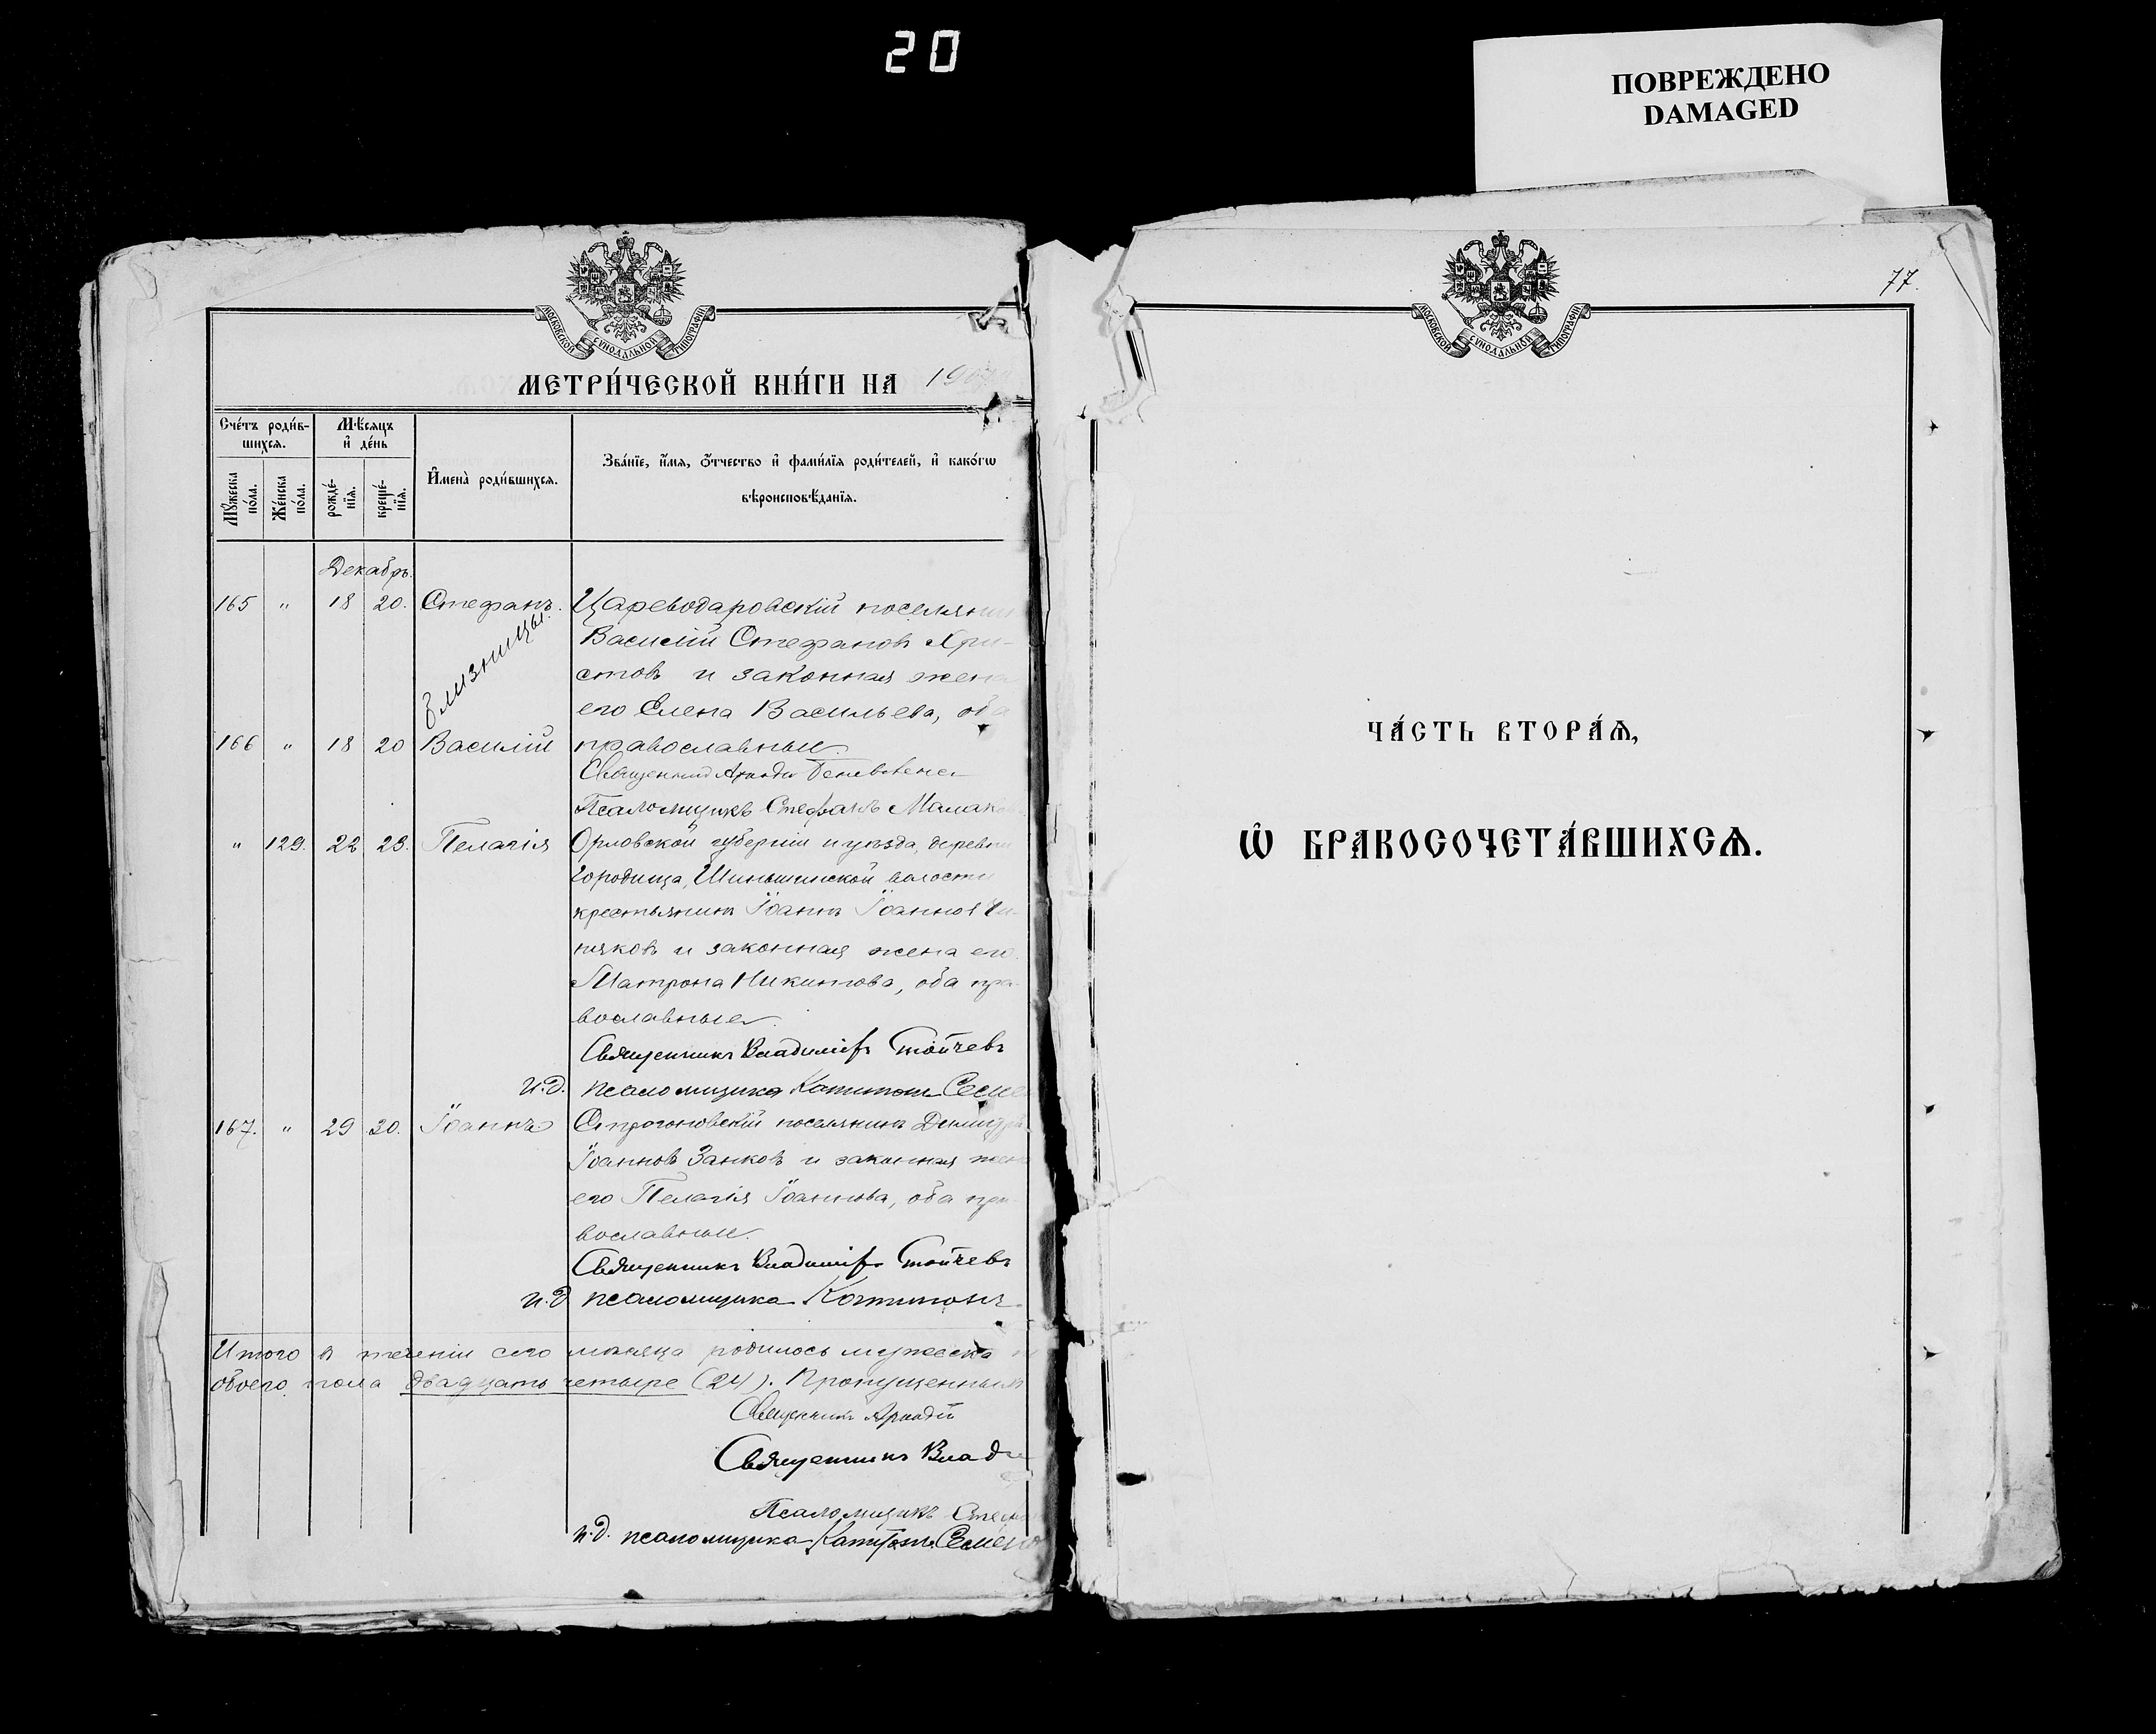 20
ПОВРЕЖДЕНО
DAMAGED
МОСКОВСКОЙ СѴНОДАЛЬНОЙ ТИПОГРАФІИ
МЕТРИ́ЧЕСКОЙ КНИ́ГИ НА 190
Сче́тъ роди́вшихся.
Мѣ́сяцъ и҆ де́нь
И҆мена̀ роди́вшихся.
Зва́нїе, и҆́мя, ѻ҆́тчество и҆ фами́лїя роди́телей, и҆ како́гѡ
вѣроисповѣ́данїя.
Мꙋ́жеска по́ла.
Же́нска по́ла.
рожде́нїя.
креще́нїя.
Декабрь.
165 " 18 20. Стефанъ. Цареводаровскій поселянин
Василій Стефановъ Хри-
стовъ и законная жена
близнецы.
его Елена Васильева, оба
166 " 18 20 Василій православные.
Священникъ Аркадій
Псаломщикъ Стефанъ
" 129. 22 23. Пелагія Орловской губерніи и уѣзда, деревни
Городища, волости
крестьянинъ Іоаннъ Іоанновъ
и законная жена его
Матрона Никитова, оба пра-
вославные.
Священникъ Владиміръ Стойчевъ
и.д. псаломщика Капитонъ Семе
167. " 29 30. Іоаннъ Строгоновскій поселянинъ Димитрій
Іоанновъ Занковъ и законная жена
его Пелагія Іоаннова, оба пра-
вославные.
Священникъ Владиміръ Стойчевъ
и.д. псаломщика Капитонъ
Итого в теченіи сего мѣсяца родилось мужеска
обоего пола двадцать четыре (24). Пропущенныхъ
Священникъ Аркадій
Священникъ Влади
Псаломщикъ Стефа
и.д. псаломщика Капитонъ Семено
77.
МОСКОВСКОЙ СѴНОДАЛЬНОЙ ТИПОГРАФІИ
ЧА́СТЬ ВТОРА́Ѧ,
Ѡ҆ БРАКОСОЧЕТА́ВШИХСѦ.